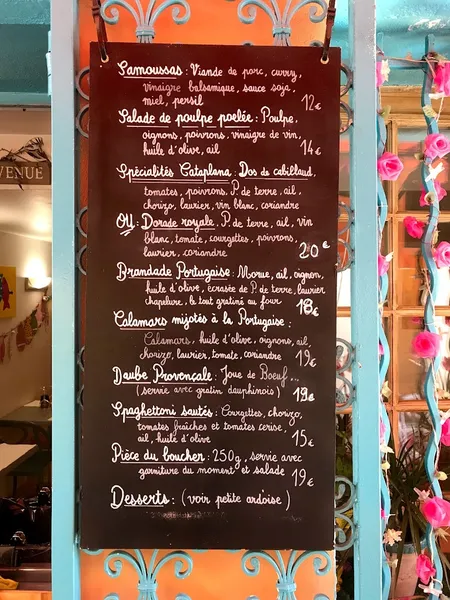 VENUE
Samoussas : Viande de porc, curry,
vinaigre balsamique, sauce soja,
miel, persil 12€
Salade de poulpe poelée : Poulpe,
oignons, poivrons, vinaigre de vin,
huile d'olive, ail 14€
Spécialités Cataplana : Dos de cabillaud,
tomates, poivrons, P. de terre, ail,
chorizo, laurier, vin blanc, coriandre
OU : Dorade royale. P. de terre, ail, vin
blanc, tomate, courgettes, poivrons,
laurier, coriandre 20€
Brandade Portugaise : Morue, ail, oignon,
huile d'olive, écrasée de P. de terre, laurier
chapelure, le tout gratiné au four 18€
Calamars mijotés à la Portugaise :
Calamars, huile d'olive, oignons, ail,
chorizo, laurier, tomate, coriandre 19€
Daube Provençale : Joue de Boeuf...
(servie avec gratin dauphinois) 19€
Spaghettoni sautés : Courgettes, chorizo,
tomates fraîches et tomates cerise,
ail, huile d'olive 15€
Pièce du boucher : 250g, servie avec
garniture du moment et salade 19€
Desserts : (voir petite ardoise)